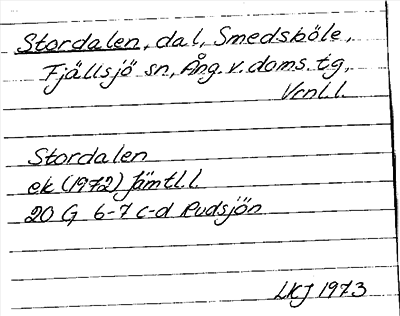 Stordalen, dal, Smedsböle,
Fjällsjö sn, Ång. v. doms. tg,
Vrnl.l.
Stordalen
ek (1972) Jämtl.l.
20 G 6-7 c-d Rudsjön
LKJ 1973